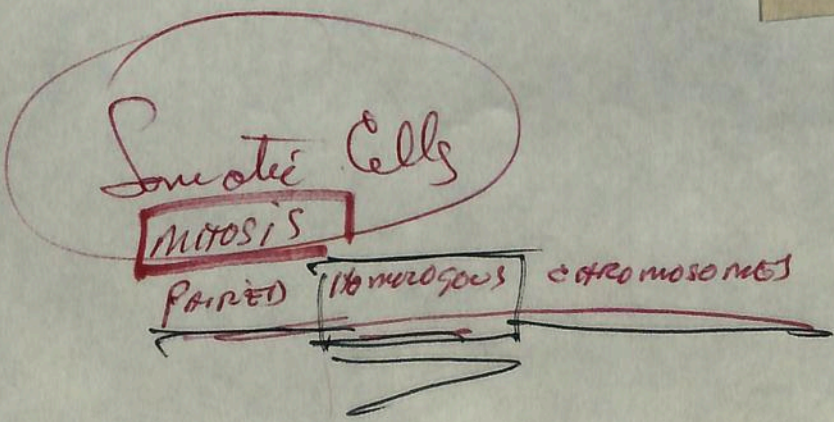 Somatic Cells
MITOSIS
PAIRED Homologous CHROMOSOMES